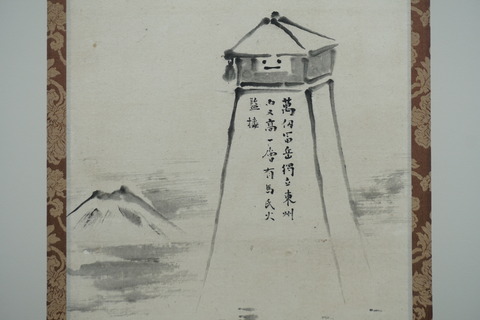 萬仞富岳獨立東州
而又高一層有馬氏火
監樓